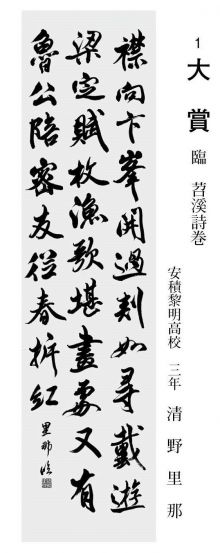 1 大賞 臨 苕溪詩巻
安積黎明高校 三年 清野里那
襟向卞峯開過剡如尋戴遊
梁定賦枚漁歌堪畫處又有
魯公陪密友從春拆紅
里那臨